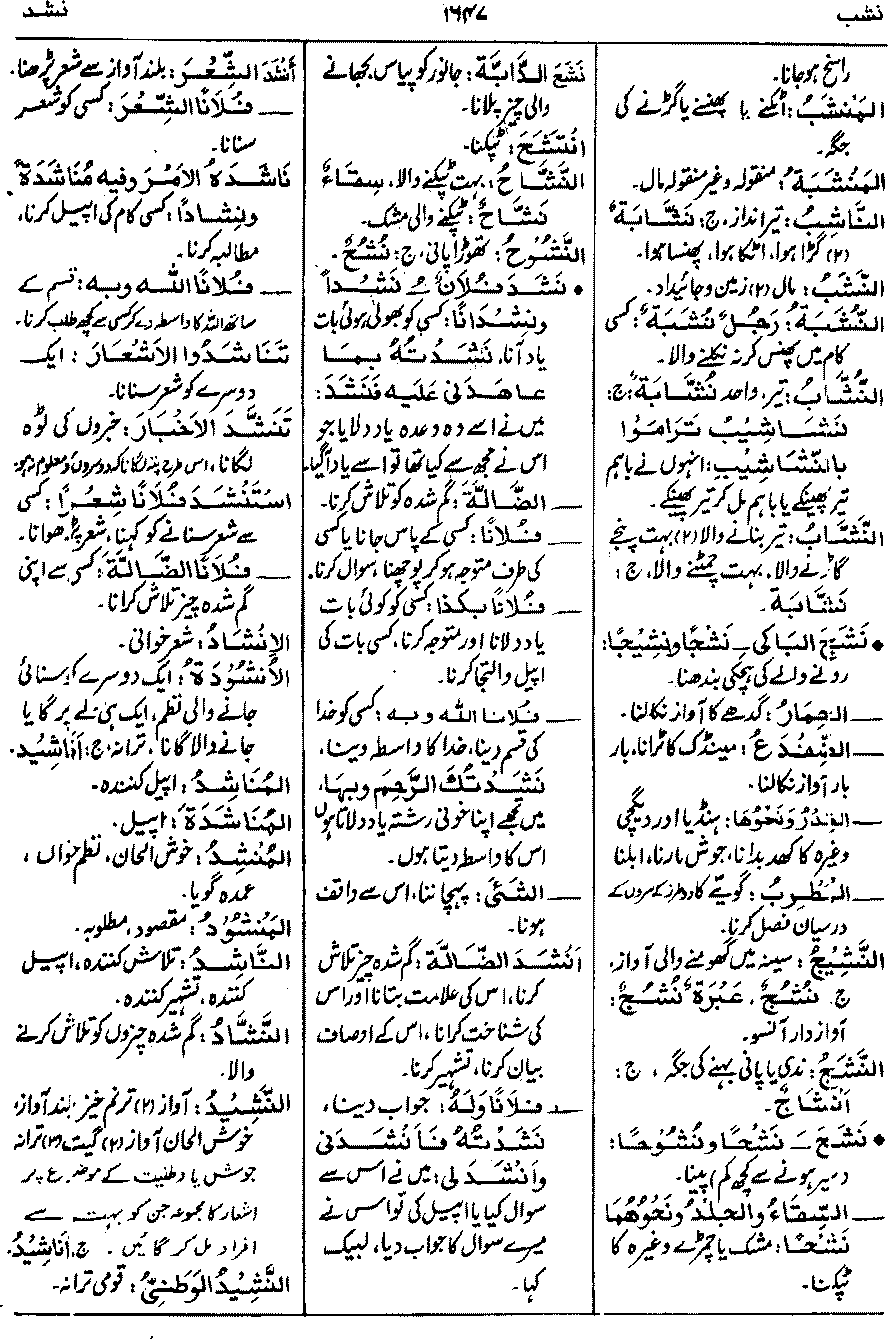 نشب
۱۶۴۷
نشد
راسخ ہوجانا۔
المَنْشَبُ: اٹکنے یا پھنسنے یا گڑنے کی
جگہ۔
المَنْشَبَة: منقولہ وغیر منقولہ مال۔
النَّاشِبُ: تیر انداز، ج: نَشَّابَةٌ
(۲) گڑا ہوا، اٹکا ہوا، پھنسا ہوا۔
النَّشَبُ: مال (۲) زمین و جائیداد۔
النُّشَبَةُ: رَجُلٌ نُشَبَةٌ: کسی
کام میں پھنس کر نہ نکلنے والا۔
النُّشَّابُ: تیر، واحد نُشَّابَة، ج:
نَشَاشِيْبُ تَرَامَوْا
بِالنَّشَاشِيْبِ: انہوں نے باہم
تیر پھینکے یا باہم مل کر تیر پھینکے۔
النَّشَّابُ: تیر بنانے والا (۲) بہت پنجے
گاڑنے والا، بہت چمٹنے والا، ج:
نَشَّابَة۔
• نَشَجَ البَاكِي ــِ نَشْجًا ونَشِيْجًا:
رونے والے کی ہچکی بندھنا۔
— الحِمَارُ: گدھے کا آواز نکالنا۔
— الضِّفْدَعُ: مینڈک کا ٹرانا، بار
بار آواز نکالنا۔
— القِدْرُ وَنَحْوُهَا: ہنڈیا اور دیگچی
وغیرہ کا کھدبدانا، جوش مارنا، ابلنا
— المُطْرِبُ: گویّے کا دو طرز کے سروں کے
درمیان فصل کرنا۔
النَّشِيْجُ: سینہ میں گھومنے والی آواز،
ج۔ نُشُجٌ، عَبْرَةٌ نُشُجٌ:
آواز دار آنسو۔
النَّشَجُ: ندی یا پانی بہنے کی جگہ، ج:
أَنْشَاجٌ۔
• نَشَحَ ــَ نَشْحًا ونُشُوْحًا:
(سیر ہونے سے کچھ کم) پینا۔
— السِّقَاءُ والجِلْدُ ونَحْوُهُمَا
نَشْحًا: مشک یا چمڑے وغیرہ کا
ٹپکنا۔
نَشَحَ الدَّابَّةَ: جانور کو پیاس بجھانے
والی چیز پلانا۔
انْتَشَحَ: ٹپکنا۔
النَّشَّاحُ: بہت ٹپکنے والا، سِقَاءٌ
نَشَّاحٌ: ٹپکنے والی مشک۔
النَّشُوْحُ: تھوڑا پانی، ج: نُشُحٌ۔
• نَشَدَ فُلَانٌ ــُ نَشْداً
ونِشْدَانًا: کسی کو بھولی ہوئی بات
یاد آنا، نَشَدْتُهُ بِمَا
عَاهَدَنِي عَلَيهِ فَنَشَدَ:
میں نے اسے وہ وعدہ یاد دلایا جو
اس نے مجھ سے کیا تھا تو اسے یاد آگیا۔
— الضَّالَّةَ: گم شدہ کو تلاش کرنا۔
— فُلَانًا: کسی کے پاس جانا یا کسی
کی طرف متوجہ ہو کر پوچھنا، سوال کرنا۔
— فُلَانًا بِكَذَا: کسی کو کوئی بات
یاد دلانا اور متوجہ کرنا، کسی بات کی
اپیل والتجا کرنا۔
— فُلَانًا اللهَ وبه: کسی کو خدا
کی قسم دینا، خدا کا واسطہ دینا،
نَشَدْتُكَ الرَّحِمَ وبِهَا،
میں تجھے اپنا خونی رشتہ یاد دلاتا ہوں
اس کا واسطہ دیتا ہوں۔
— الشَّئَ: پہچاننا، اس سے واقف
ہونا۔
أَنْشَدَ الضَّالَّةَ: گم شدہ چیز تلاش
کرنا، اس کی علامت بتانا اور اس
کی شناخت کرانا، اس کے اوصاف
بیان کرنا، تشہیر کرنا۔
— فُلَانًا وَلَهُ: جواب دینا،
نَشَدْتُهُ فَأَنْشَدَنِي
وأَنْشَدَ لِي: میں نے اس سے
سوال کیا یا اپیل کی تو اس نے
میرے سوال کا جواب دیا، لبیک
کہا۔
أَنْشَدَ الشِّعْرَ: بلند آواز سے شعر پڑھنا۔
— فُلَانًا الشِّعْرَ: کسی کو شعر
سنانا۔
نَاشَدَهُ الأَمْرَ وفِيهِ مُنَاشَدَةً
ونِشَادًا: کسی کام کی اپیل کرنا،
مطالبہ کرنا۔
— فُلَانًا اللهَ وبه: قسم کے
ساتھ اللہ کا واسطہ دے کر کسی سے کچھ طلب کرنا۔
تَنَاشَدُوا الأَشْعَارَ: ایک
دوسرے کو شعر سنانا۔
تَنَشَّدَ الأَخْبَارَ: خبروں کی ٹوہ
لگانا، اس طرح پتہ لگانا کہ دوسروں کو معلوم نہ ہو۔
اسْتَنْشَدَ فُلَانًا شِعْرًا: کسی
سے شعر سنانے کو کہنا، شعر پڑھوانا۔
— فُلَانًا الضَّالَّةَ: کسی سے اپنی
گم شدہ چیز تلاش کرانا۔
الإِنْشَادُ: شعر خوانی۔
الأُنْشُوْدَةُ: ایک دوسرے کو سنائی
جانے والی نظم، ایک ہی لے پر گایا
جانے والا گانا، ترانہ، ج: أَنَاشِيْد۔
المُنَاشِدُ: اپیل کنندہ۔
المُنَاشَدَةُ: اپیل۔
المُنْشِدُ: خوش الحان، نظم خواں،
عمدہ گویا۔
المَنْشُوْدُ: مقصود، مطلوبہ۔
النَّاشِدُ: تلاش کنندہ، اپیل
کنندہ، تشہیر کنندہ۔
النَّشَّادُ: گم شدہ چیزوں کو تلاش کرنے
والا۔
النَّشِيْدُ: آواز (۲) ترنم خیز بلند آواز،
خوش الحان آواز (۲) گیت (۳) ترانہ
جوش یا وطنیت کے موضوع پر
اشعار کا مجموعہ جن کو بہت سے
افراد مل کر گائیں۔ ج، أَنَاشِيْدُ۔
النَّشِيْدُ الوَطَنِيُّ: قومی ترانہ۔